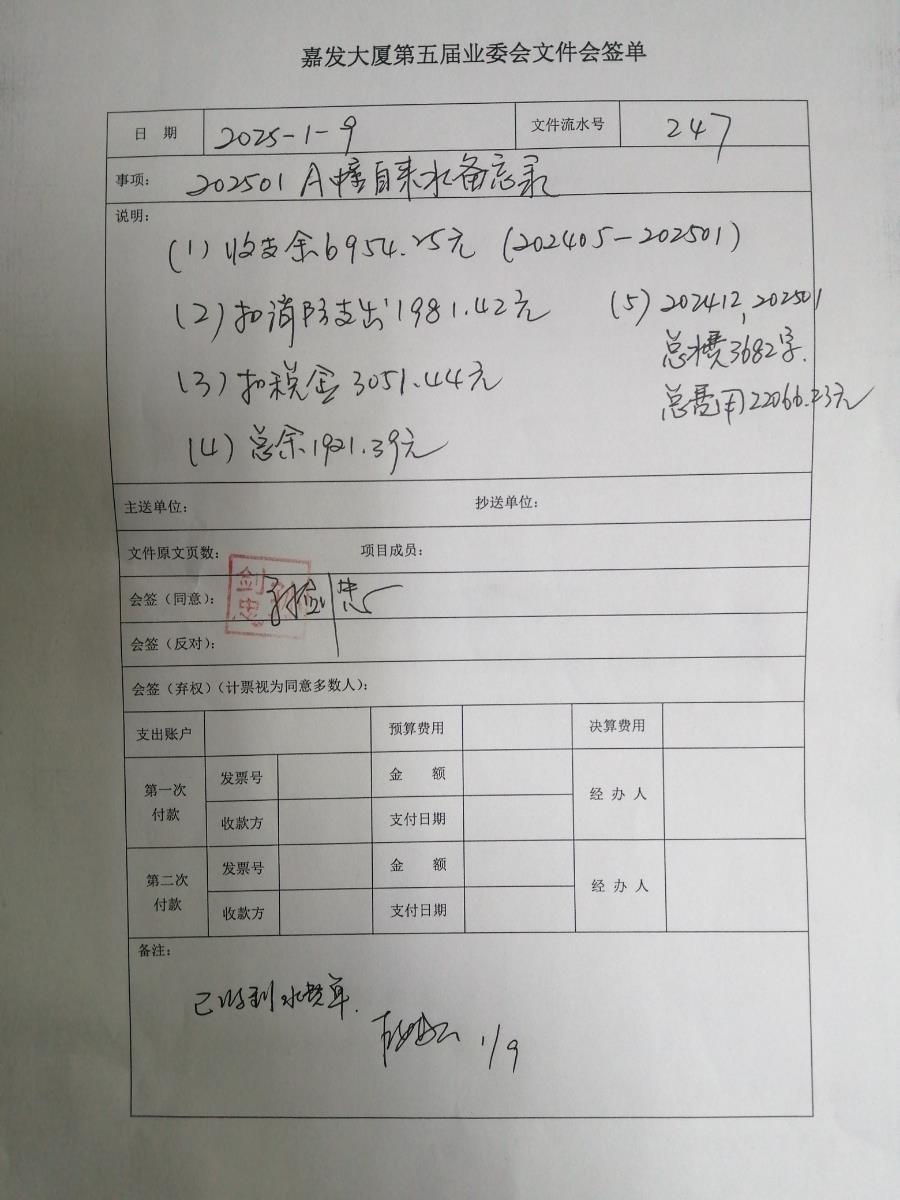 嘉发大厦第五届业委会文件会签单
日 期 2025-1-9 文件流水号 247
事项： 202501 A幢自来水备忘录
说明：
(1) 收支余6954.25元 (202405-202501)
(2) 扣消防支出1981.42元
(5) 202412, 202501
总水费3682字.
(3) 扣税金 3051.44元
总费用22066.23元
(4) 总余1921.39元
主送单位： 抄送单位：
文件原文页数： 项目成员：
会签（同意）： 孙剑忠
剑忠
会签（反对）：
会签（弃权）（计票视为同意多数人）：
支出账户 预算费用 决算费用
第一次付款 发票号 金 额 经 办 人
收款方 支付日期
第二次付款 发票号 金 额 经 办 人
收款方 支付日期
备注：
已收到水费单.
1/9